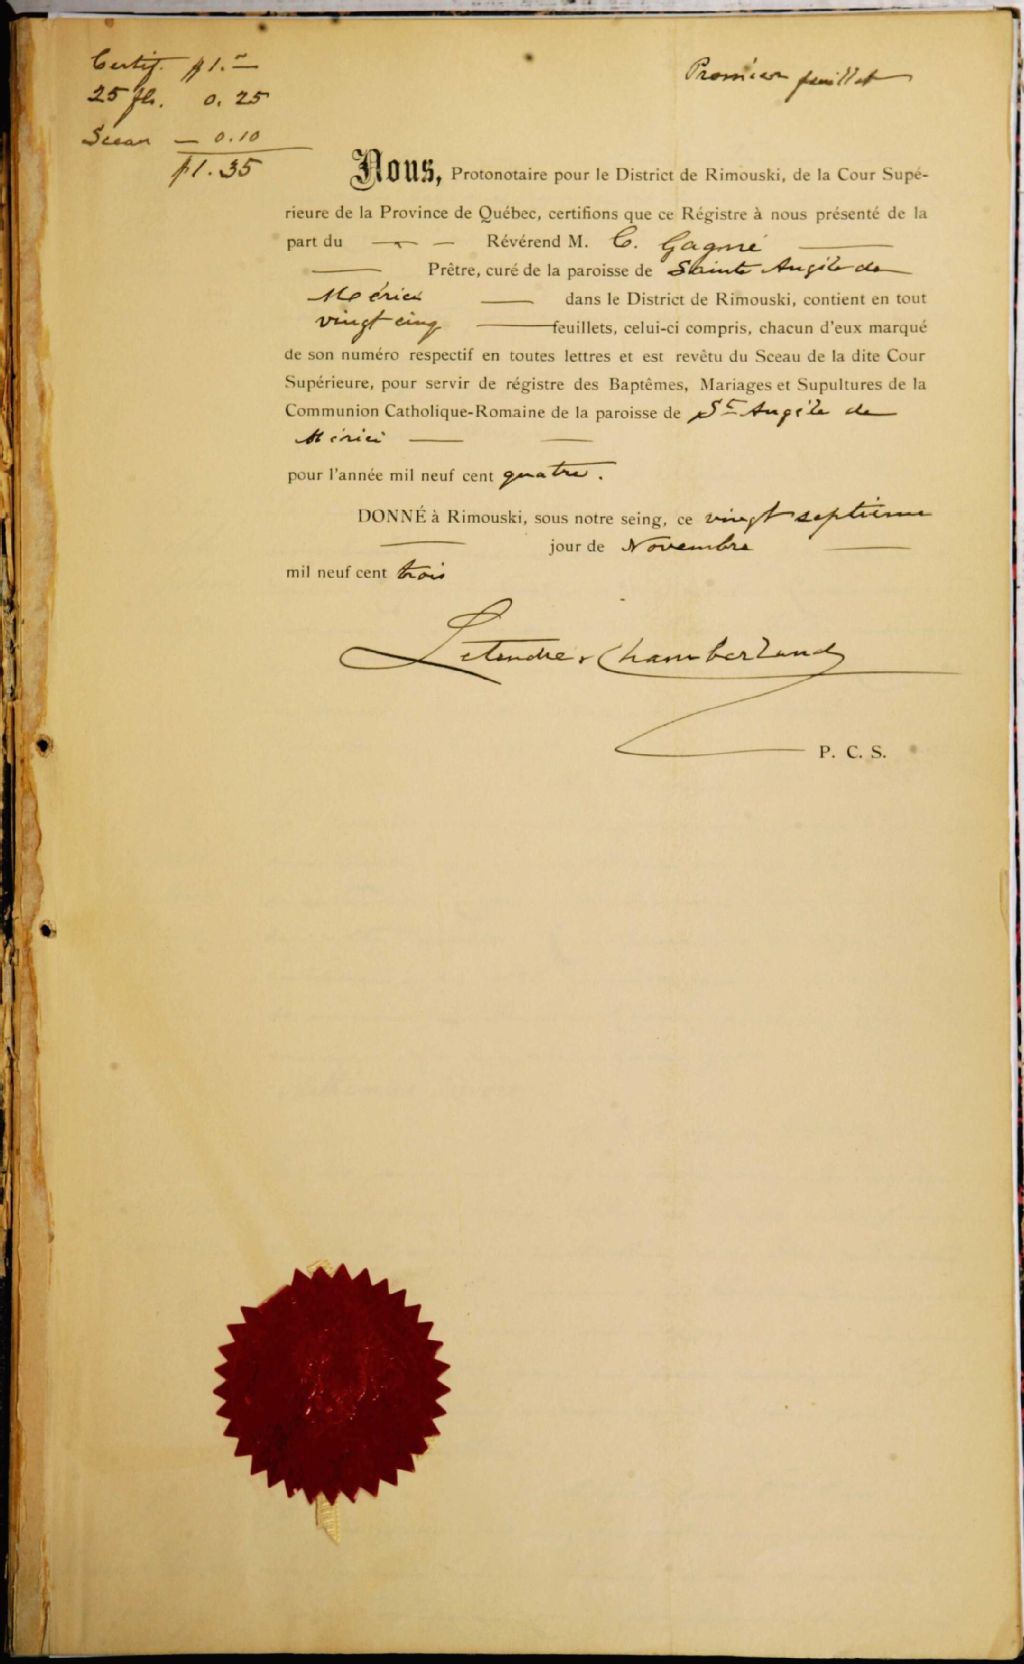 Certif. $1.—
25 fls. 0.25
Sceau — 0.10
$1.35
Premier feuillet
Nous, Protonotaire pour le District de Rimouski, de la Cour Supé-
rieure de la Province de Québec, certifions que ce Régistre à nous présenté de la
part du — — Révérend M. C. Gagné —
— Prêtre, curé de la paroisse de Sainte Angèle de
Mérici — dans le District de Rimouski, contient en tout
vingt cinq — feuillets, celui-ci compris, chacun d'eux marqué
de son numéro respectif en toutes lettres et est revêtu du Sceau de la dite Cour
Supérieure, pour servir de régistre des Baptêmes, Mariages et Supultures de la
Communion Catholique-Romaine de la paroisse de Ste Angèle de
Mérici — —
pour l'année mil neuf cent quatre.
DONNÉ à Rimouski, sous notre seing, ce vingt septième
— jour de Novembre —
mil neuf cent trois
Letendre & Chamberland
P. C. S.